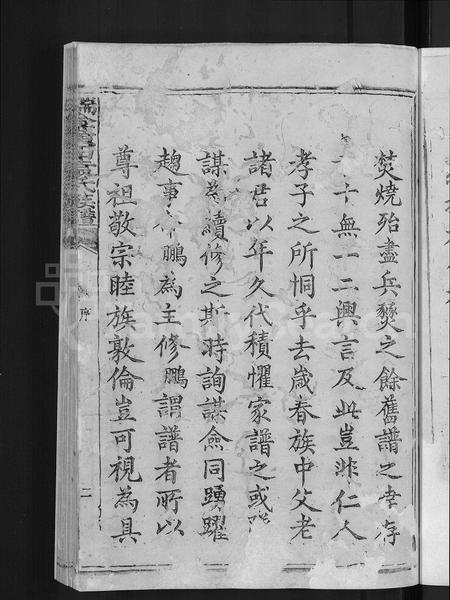 焚燒殆盡兵燹之餘舊譜之幸存
十無一二興言及此豈非仁人
孝子之所恫乎去歲春族中父老
諸君以年久代積懼家譜之或
謀為續修之斯時詢謀僉同踴躍
趨事命鵬為主修鵬謂譜者所以
尊祖敬宗睦族敦倫豈可視為具
氏族譜
序
二